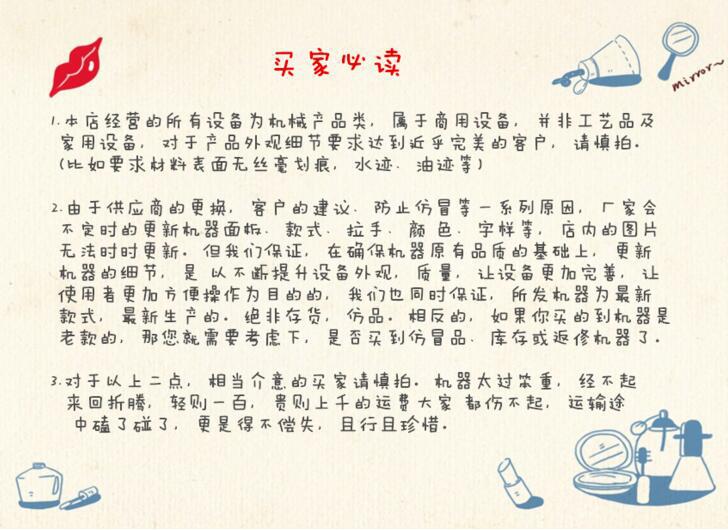 买家必读
mirror~
1.本店经营的所有设备为机械产品类，属于商用设备，并非工艺品及
家用设备，对于产品外观细节要求达到近乎完美的客户，请慎拍。
(比如要求材料表面无丝毫划痕，水迹、油迹等)
2.由于供应商的更换，客户的建议、防止仿冒等一系列原因，厂家会
不定时的更新机器面板、款式、拉手、颜色、字样等，店内的图片
无法时时更新。但我们保证，在确保机器原有品质的基础上，更新
机器的细节，是以不断提升设备外观，质量，让设备更加完善，让
使用者更加方便操作为目的的，我们也同时保证，所发机器为最新
款式，最新生产的。绝非存货，仿品。相反的，如果你买的到机器是
老款的，那您就需要考虑下，是否买到仿冒品、库存或返修机器了。
3.对于以上二点，相当介意的买家请慎拍。机器太过笨重，经不起
来回折腾，轻则一百，贵则上千的运费大家都伤不起，运输途
中磕了碰了，更是得不偿失，且行且珍惜。